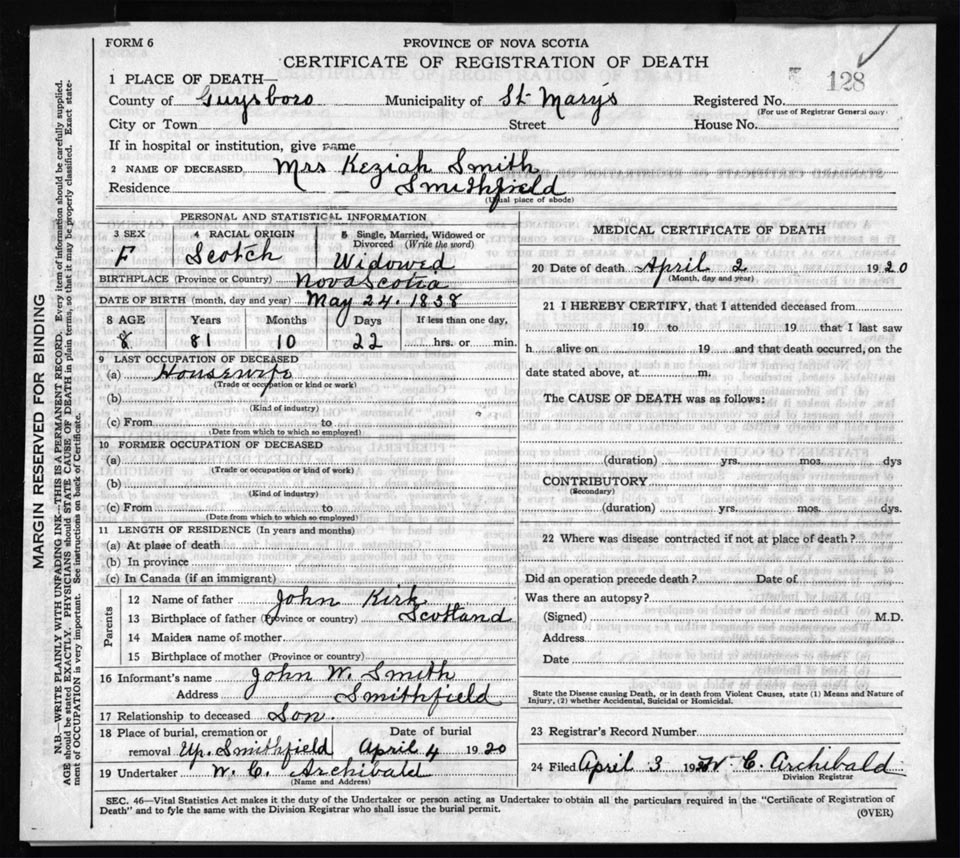 FORM 6
PROVINCE OF NOVA SCOTIA
CERTIFICATE OF REGISTRATION OF DEATH
128
1 PLACE OF DEATH—
County of Guysboro Municipality of St Mary's Registered No.
(For use of Registrar General only.
City or Town Street House No.
If in hospital or institution, give name
2 NAME OF DECEASED Mrs Keziah Smith
Residence Smithfield
(Usual place of abode)
PERSONAL AND STATISTICAL INFORMATION
3 SEX
F
4 RACIAL ORIGIN
Scotch
5 Single, Married, Widowed or Divorced (Write the word)
Widowed
BIRTHPLACE (Province or Country) Nova Scotia
DATE OF BIRTH (month, day and year) May 24. 1838
8 AGE Years Months Days If less than one day,
8 81 10 22 hrs. or min.
9 LAST OCCUPATION OF DECEASED
(a) Housewife
(Trade or occupation or kind or work)
(b)
(Kind of industry)
(c) From to
(Date from which to which so employed)
10 FORMER OCCUPATION OF DECEASED
(a)
(Trade or occupation or kind of work)
(b)
(Kind of industry)
(c) From to
(Date from which to which so employed)
11 LENGTH OF RESIDENCE (In years and months)
(a) At place of death
(b) In province
(c) In Canada (if an immigrant)
Parents
12 Name of father John Kirk
13 Birthplace of father (Province or country) Scotland
14 Maiden name of mother
15 Birthplace of mother (Province or country)
16 Informant's name John W. Smith
Address Smithfield
17 Relationship to deceased Son.
18 Place of burial, cremation or Date of burial
removal Up. Smithfield April 4 1920
19 Undertaker W. C. Archibald
(Name and Address)
MEDICAL CERTIFICATE OF DEATH
20 Date of death April 2 1920
(Month, day and year)
21 I HEREBY CERTIFY, that I attended deceased from
19 to 19 that I last saw
h alive on 19 and that death occurred, on the
date stated above, at m.
The CAUSE OF DEATH was as follows:
(duration) yrs. mos. dys
CONTRIBUTORY
(Secondary)
(duration) yrs. mos. dys.
22 Where was disease contracted if not at place of death?
Did an operation precede death? Date of
Was there an autopsy?
(Signed) M.D.
Address
Date
State the Disease causing Death, or in death from Violent Causes, state (1) Means and Nature of
Injury, (2) whether Accidental, Suicidal or Homicidal.
23 Registrar's Record Number
24 Filed April 3 192 W. C. Archibald
Division Registrar
SEC. 46—Vital Statistics Act makes it the duty of the Undertaker or person acting as Undertaker to obtain all the particulars required in the "Certificate of Registration of
Death" and to fyle the same with the Division Registrar who shall issue the burial permit.
(OVER)
MARGIN RESERVED FOR BINDING
N.B.—WRITE PLAINLY WITH UNFADING INK—THIS IS A PERMANENT RECORD. Every item of information should be carefully supplied.
AGE should be stated EXACTLY. PHYSICIANS should STATE CAUSE OF DEATH in plain terms, so that it may be properly classified. Exact state-
ment of OCCUPATION is very important. See instructions on back of Certificate.